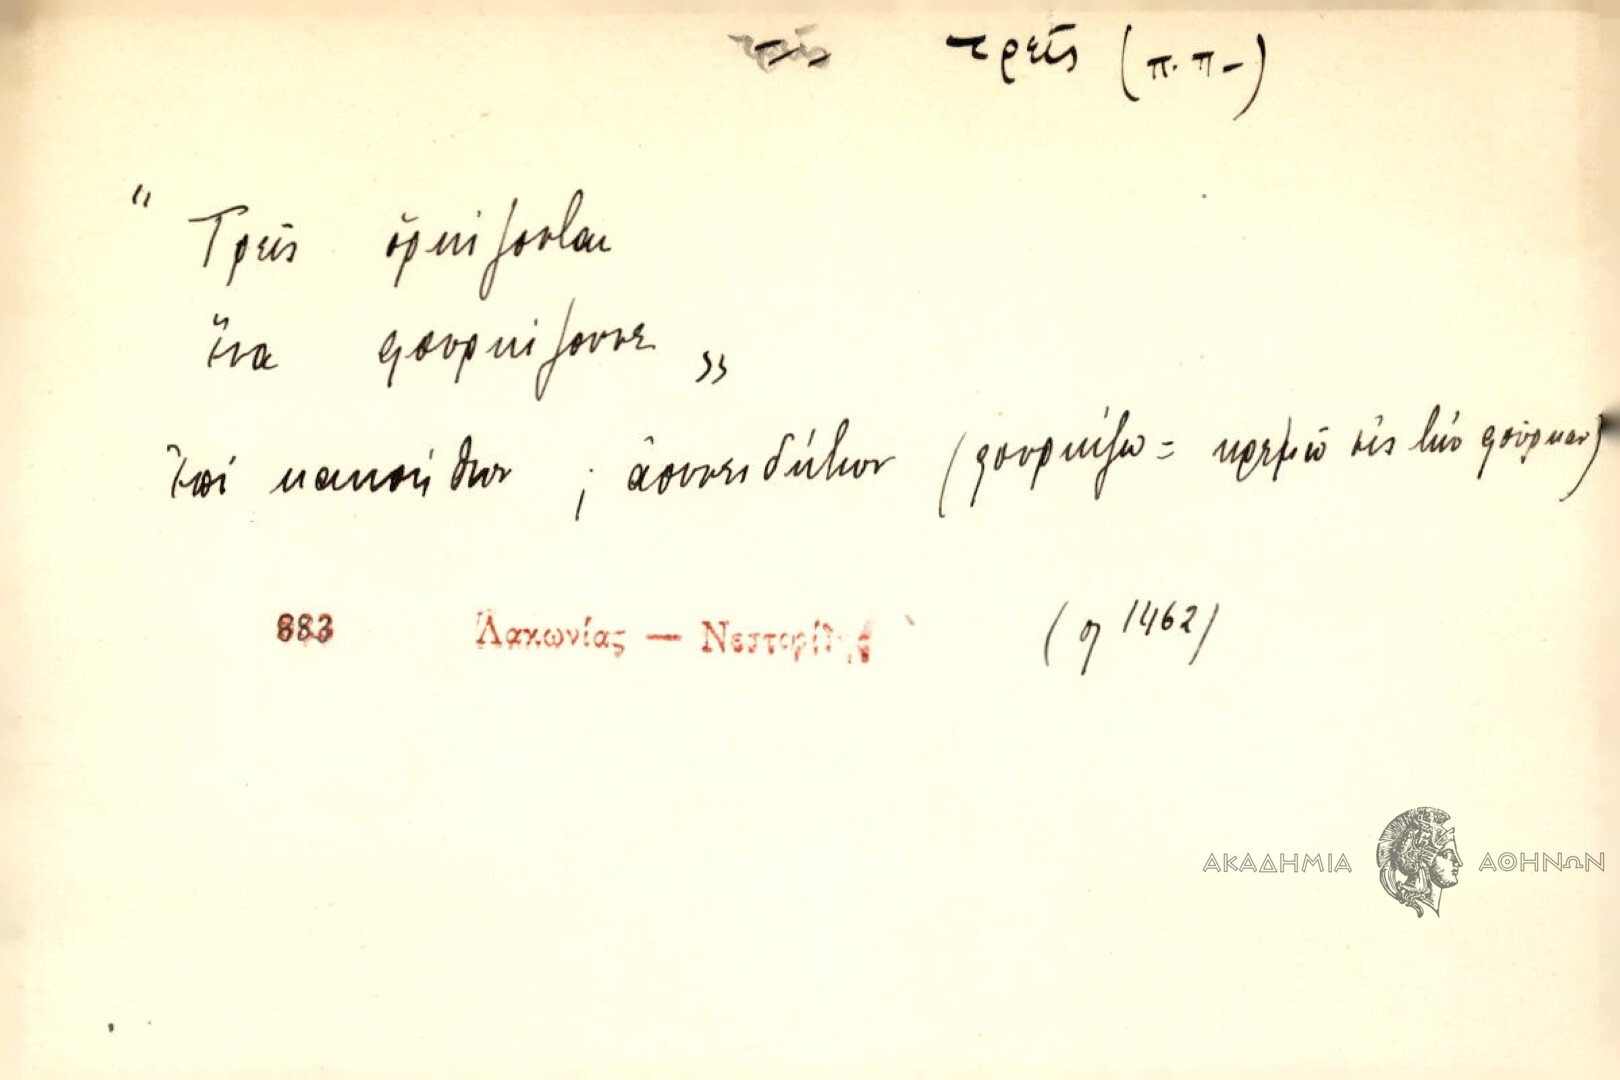 τρεῖς (π.π-)
“ Τρεῖς ὁρκίζονται
ἕνα φουρκίζουνε „
Ἐπὶ κακοήθων ; ἀσυνειδήτων (φουρκίζω = κρεμῶ εἰς τὴν φούρκαν)
883 Λακωνίας — Νεστορίδης (η 1462)
ΑΚΑΔΗΜΙΑ ΑΘΗΝΩΝ